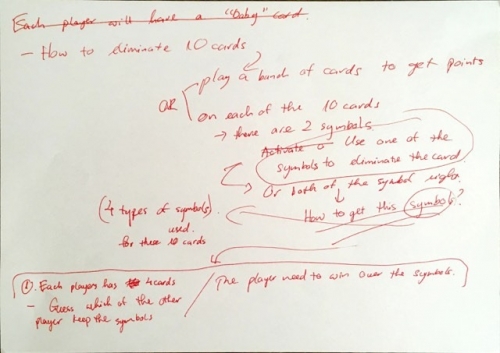 Each player will have a "Baby" card.
- How to eliminate 10 cards
play a bunch of cards to get points
OR
on each of the 10 cards
→ there are 2 symbols
Activate a Use one of the
symbols to eliminate the card
Or both of the symbol
(4 types of symbols)
used
for these 10 cards
How to get this symbols?
① Each players has 4 cards
- Guess which of the other
player keep the symbols
The player need to win over the symbols.